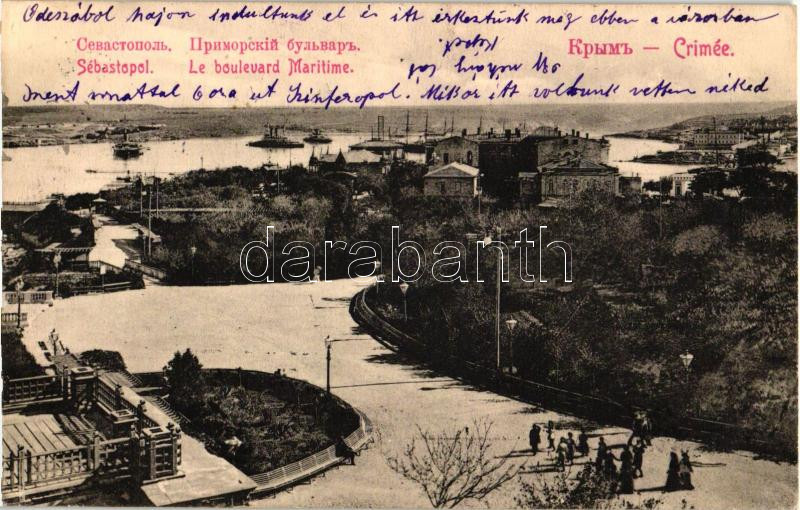 Odeszából hajon indultunk el és itt érkeztünk meg ebben a városban
Севастополь. Приморскій бульваръ.
Крымъ — Crimée.
Sébastopol. Le boulevard Maritime.
Innent vonattal 6 ora ut Szinferopol. Mikor itt voltunk vettem néked
darabanth